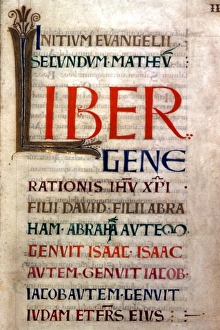 INITIUM EVANGELII
SECUNDUM·MATHEŪ
LIBER
GENE
RATIONIS IHŪ XPI
FILII DAVID·FILII ABRA
HAM·ABRAHĀ AUTEM
GENUIT ISAAC·ISAAC
AUTEM·GENUIT IACOB·
IACOB AUTEM·GENUIT
IUDAM ET FRS EIUS